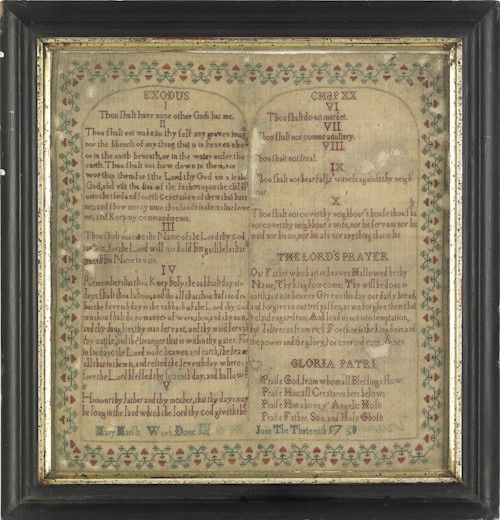 EXODUS
I
Thou shalt have none other Gods but me.
II
Thou shalt not make to thy self any graven imag
nor the likeness of any thing that is in heaven abov
or in the earth beneath, or in the water under the
earth. Thou shalt not bow down to them, nor
worship them for I the Lord thy God am a jealo
God, and the sins of the fathers upon the child
unto the third and fourth Generation of them that hate
me, and show mercy unto thousands in them that love
me, and Keep my commandments.
III
Thou shalt not take the Name of the Lord thy God
in vain, for the Lord will not hold him guiltless that
Name in vain.
IV
Remember that thou Keep holy the sabbath day, six
days shalt thou labour, and do all that thou hast to do
but the Seventh day is the sabbath of the Lord thy God
in it thou shalt do no manner of work, thou and thy son,
and thy daughter, thy man servant, and thy maid servan
thy cattle, and the stranger that is within thy gates. For
in six days the Lord made heaven and earth, the sea
all that in them is, and rested the Seventh day, where
fore the Lord blessed the seventh day, and hallowed
V
Honour thy father and thy mother, that thy days may
be long in the land which the lord thy God giveth the
CHAP XX
VI
Thou shalt do no murder.
VII
Thou shalt not commit adultery.
VIII
Thou shalt not steal.
IX
Thou shalt not bear false witness against thy neigh
bour.
X
Thou shalt not covet thy neighbour's house thou sha
not covet thy neighbour's wife, nor his servant nor his
maid nor his ox, nor his ass nor any thing that is his
THE LORD'S PRAYER
Our Father which art in heaven Hallowed be thy
Name, Thy kingdom come, Thy will be done in
earth as it is in heaven Give us this day our daily bread,
and forgive us our trespasses, as we forgive them that
trespass against us, And lead us not into temptation,
but deliver us from evil For thine is the kingdom and
the power and the glory, for ever and ever. Amen.
GLORIA PATRI
Praise God, from whom all Blessings flow:
Praise Him, all Creatures here below:
Praise Him above y Angelic Host:
Praise Father, Son, and Holy Ghost
Mary Marsh Work Done
June The Thirteenth